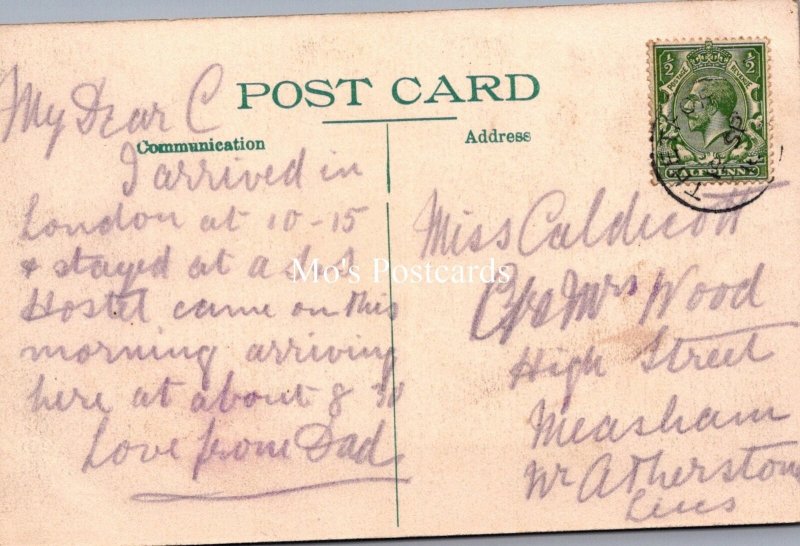 POST CARD
Communication
My Dear C
I arrived in
London at 10-15
& stayed at a
Hostel came on this
morning arriving
here at about 8 30
Love from Dad
Address
Miss Caldicott
c/o Mrs Wood
High Street
Measham
Nr Atherstone
Leics
½ ½
POSTAGE REVENUE
HALFPENNY
Mo's Postcards